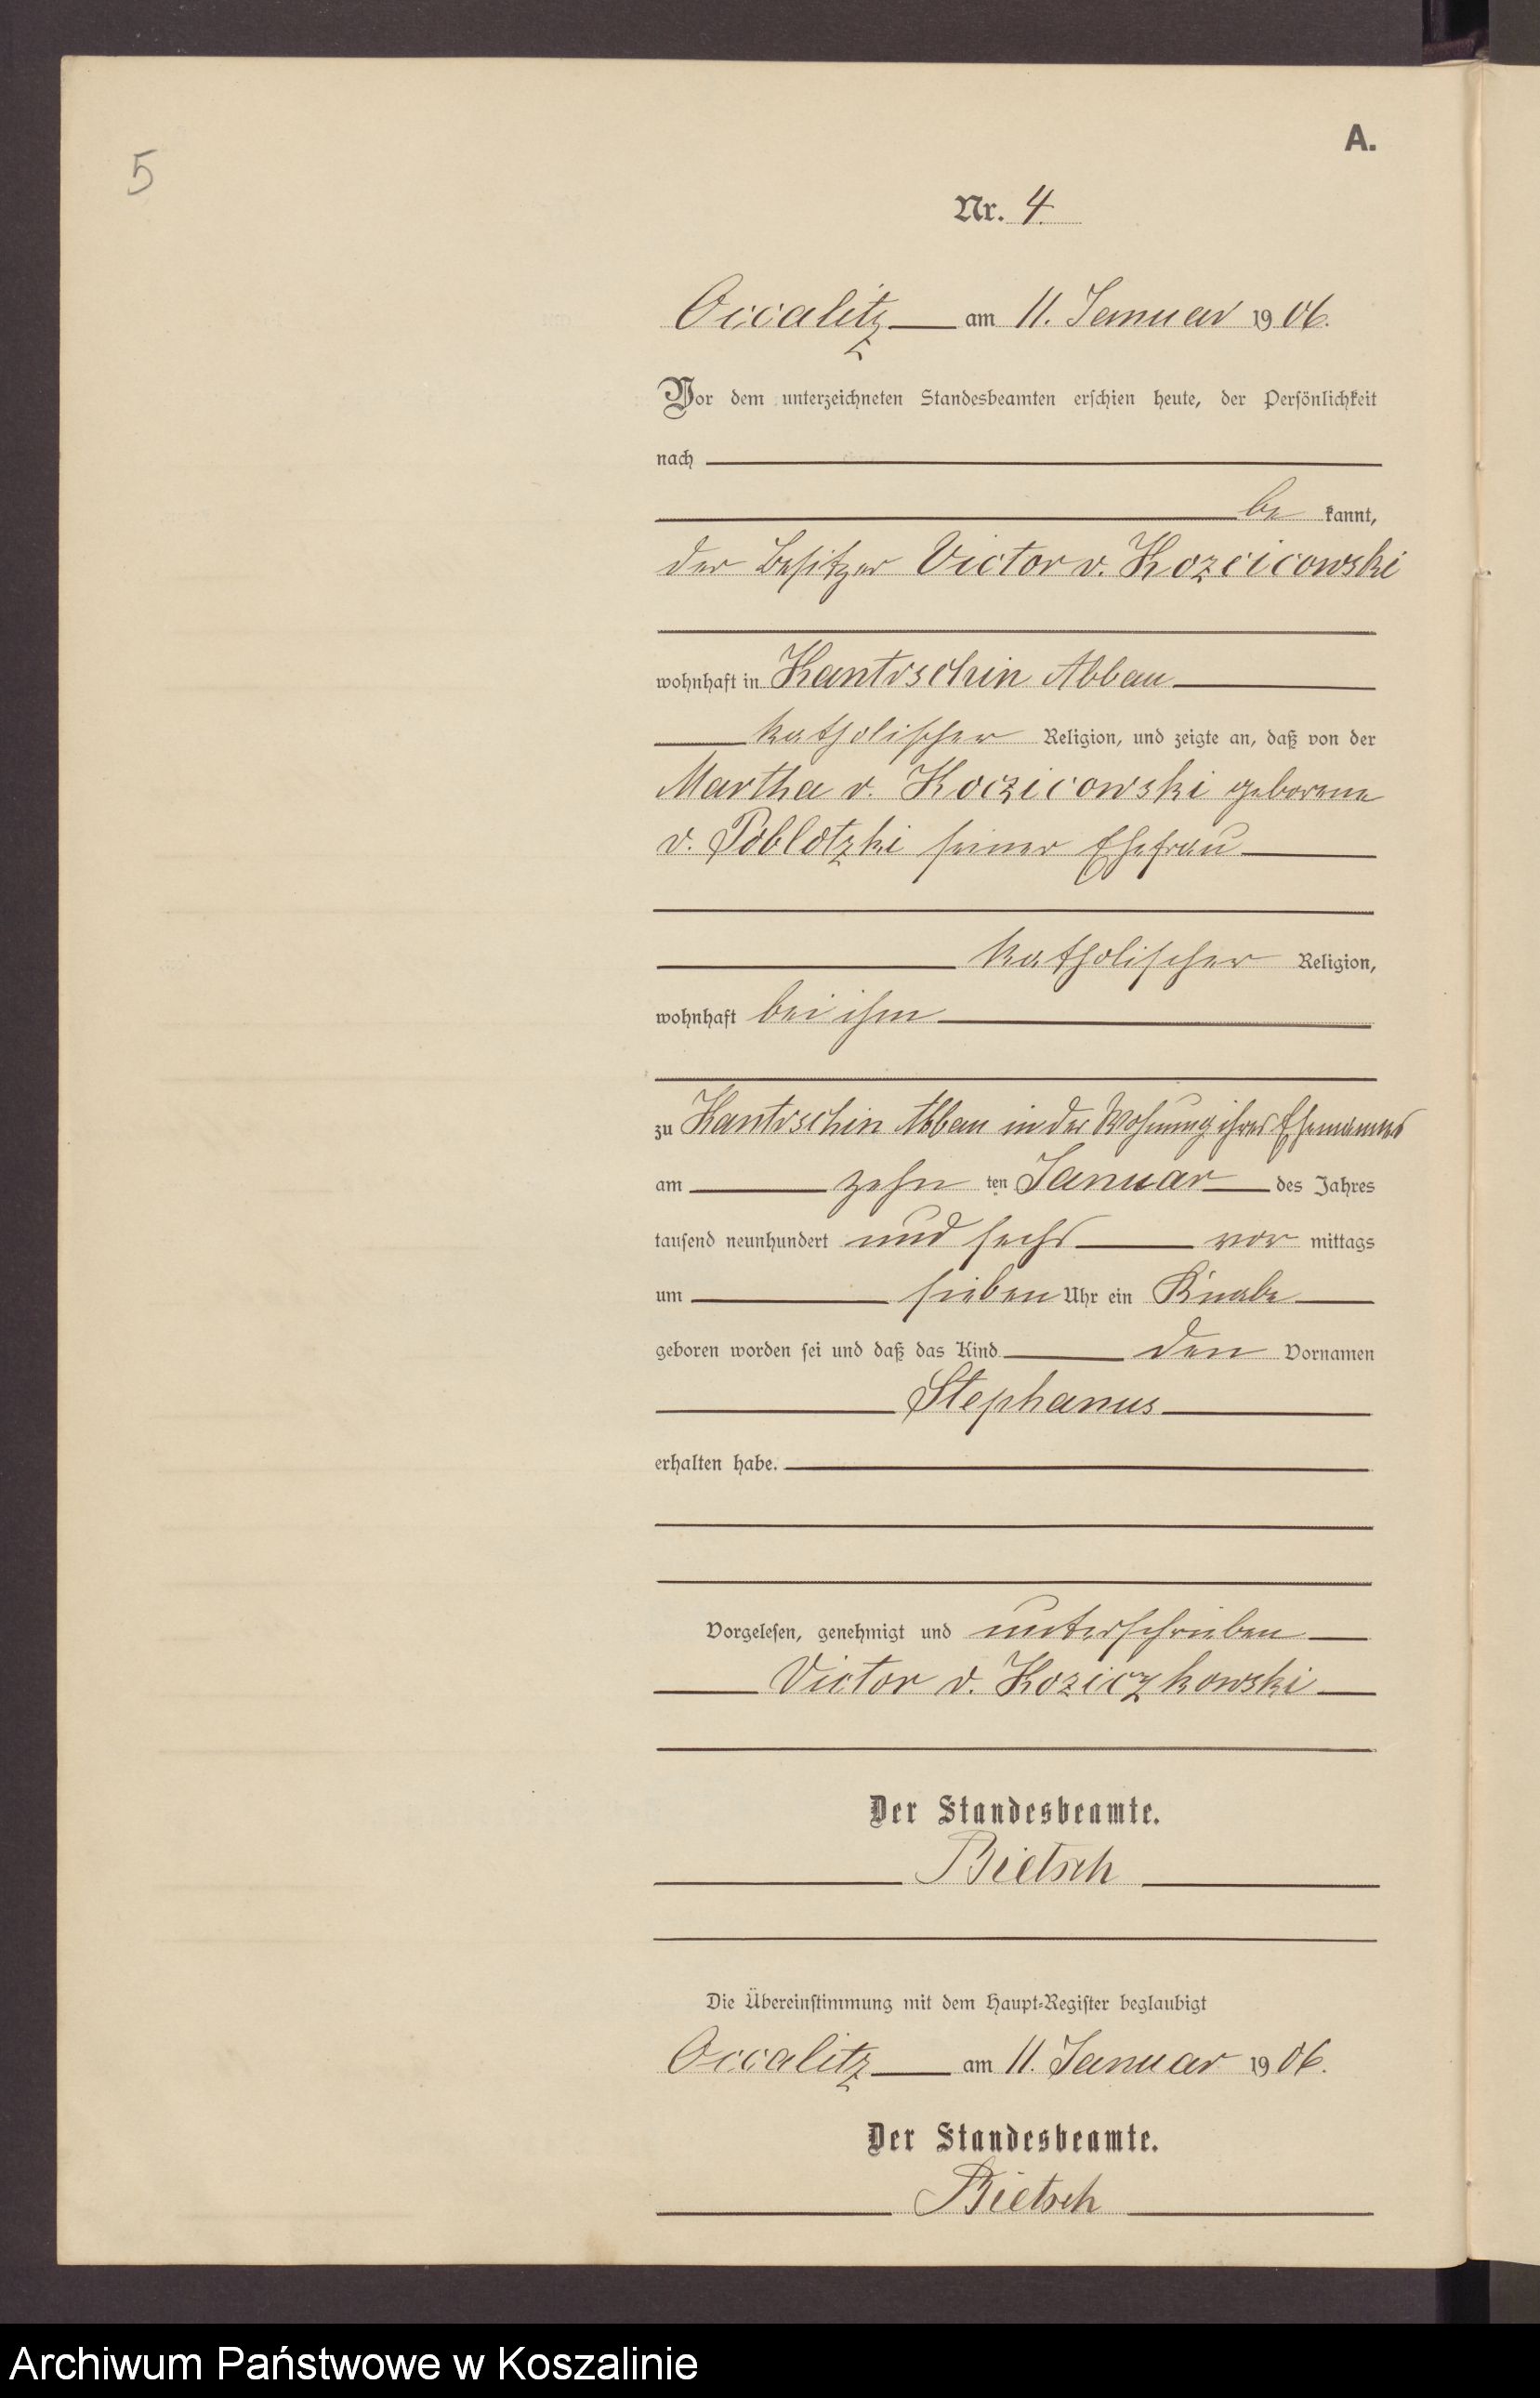 5
A.
Nr. 4
Occalitz am 11. Januar 1906.
Vor dem unterzeichneten Standesbeamten erschien heute, der Persönlichkeit
nach
be kannt,
der Besitzer Victor v. Kozcicowski
wohnhaft in Kantrschin Abbau
katholischer Religion, und zeigte an, daß von der
Martha v. Koczicowski geborene
v. Poblotzki seiner Ehefrau
katholischer Religion,
wohnhaft bei ihm
zu Kantrschin Abbau in der Wohnung ihres Ehemannes
am zehn ten Januar des Jahres
tausend neunhundert und sechs vor mittags
um sieben Uhr ein Knabe
geboren worden sei und daß das Kind den Vornamen
Stephanus
erhalten habe.
Vorgelesen, genehmigt und unterschrieben
Victor v. Koziczkowski
Der Standesbeamte.
Bietsch
Die Übereinstimmung mit dem Haupt-Register beglaubigt
Occalitz am 11. Januar 1906.
Der Standesbeamte.
Bietsch
Archiwum Państwowe w Koszalinie